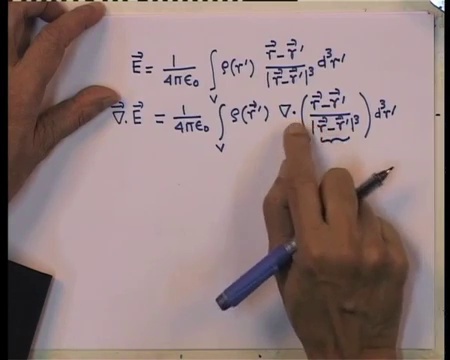 E⃗ = 1/4πε₀ ∫_V ρ(r') (r⃗ - r⃗')/|r⃗ - r⃗'|³ d³r'
∇⃗. E⃗ = 1/4πε₀ ∫_V ρ(r⃗') ∇. ( (r⃗ - r⃗')/|r⃗ - r⃗'|³ ) d³r'